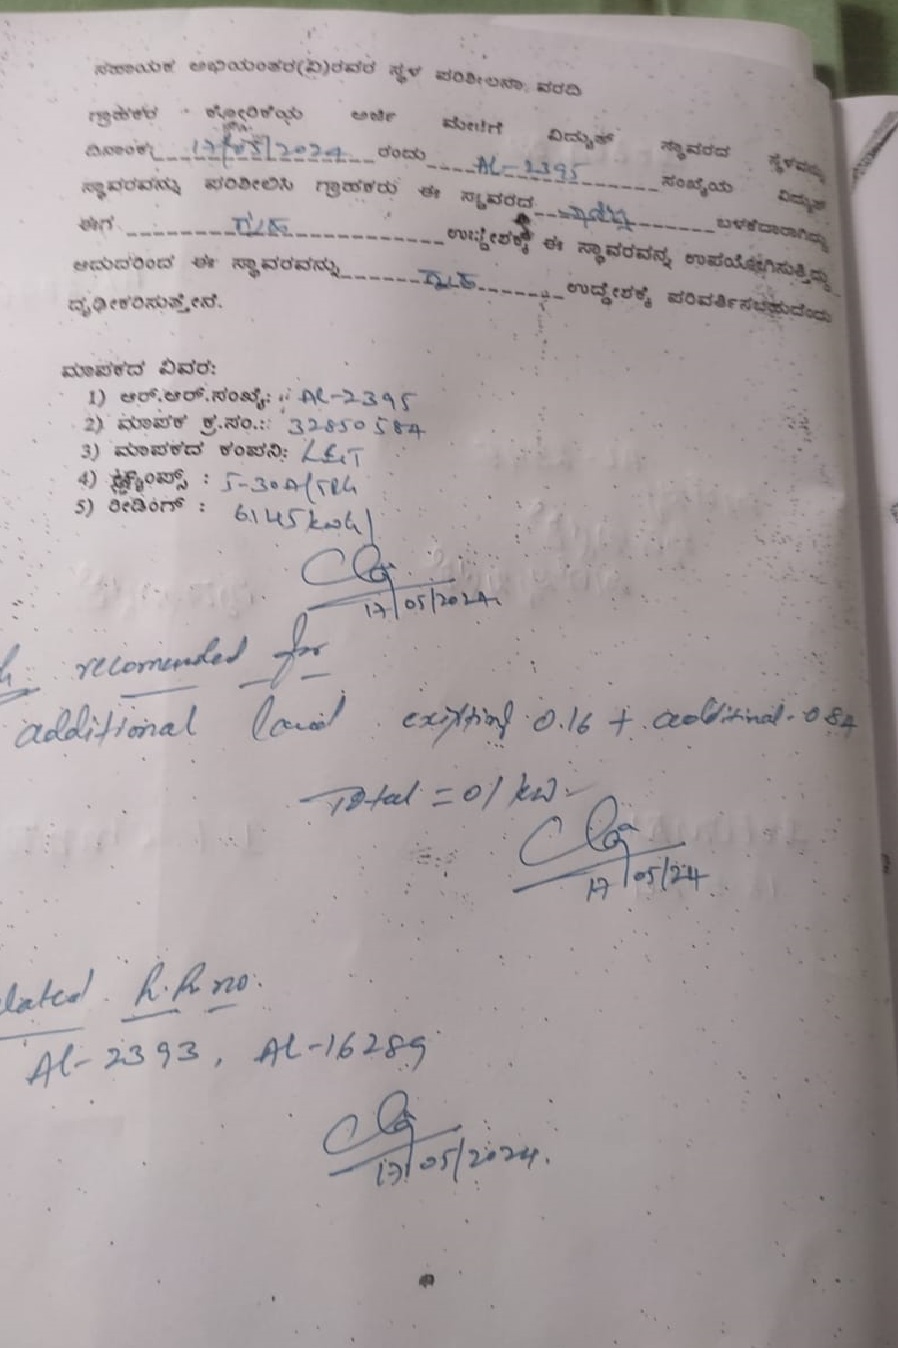 ಸಹಾಯಕ ಅಭಿಯಂತರ(ವಿ)ರವರ ಸ್ಥಳ ಪರಿಶೀಲನಾ ವರದಿ
ಗ್ರಾಹಕರ ಕೋರಿಕೆಯ ಅರ್ಜಿ ಮೇಲೆಗೆ ವಿದ್ಯುತ್ ಸ್ಥಾವರದ ಸ್ಥಳವನ್ನು
ದಿನಾಂಕ: 17/05/2024 ರಂದು AL-2395 ಸಂಖ್ಯೆಯ ವಿದ್ಯುತ್
ಸ್ಥಾವರವನ್ನು ಪರಿಶೀಲಿಸಿ ಗ್ರಾಹಕರು ಈ ಸ್ಥಾವರದ ಬಳಕೆದಾರಾಗಿದ್ದು
ಈಗ ಉದ್ದೇಶಕ್ಕೆ ಈ ಸ್ಥಾವರವನ್ನು ಉಪಯೋಗಿಸುತ್ತಿದ್ದು
ಆದುದರಿಂದ ಈ ಸ್ಥಾವರವನ್ನು ಉದ್ದೇಶಕ್ಕೆ ಪರಿವರ್ತಿಸಬಹುದೆಂದು
ದೃಢೀಕರಿಸುತ್ತೇನೆ.
ಮಾಪಕದ ವಿವರ:
1) ಆರ್.ಆರ್.ಸಂಖ್ಯೆ: AL-2395
2) ಮಾಪಕ ಕ್ರ.ಸಂ.: 32850584
3) ಮಾಪಕದ ಕಂಪನಿ: L&T
4) : 5-30A
5) ರೀಡಿಂಗ್ : 6145 kwh
17/05/2024
recomended for
additional load existing 0.16 + additinal- 0.84
Total = 01 kw
17/05/24
R.R no.
AL-2393, AL-16289
17/05/2024.